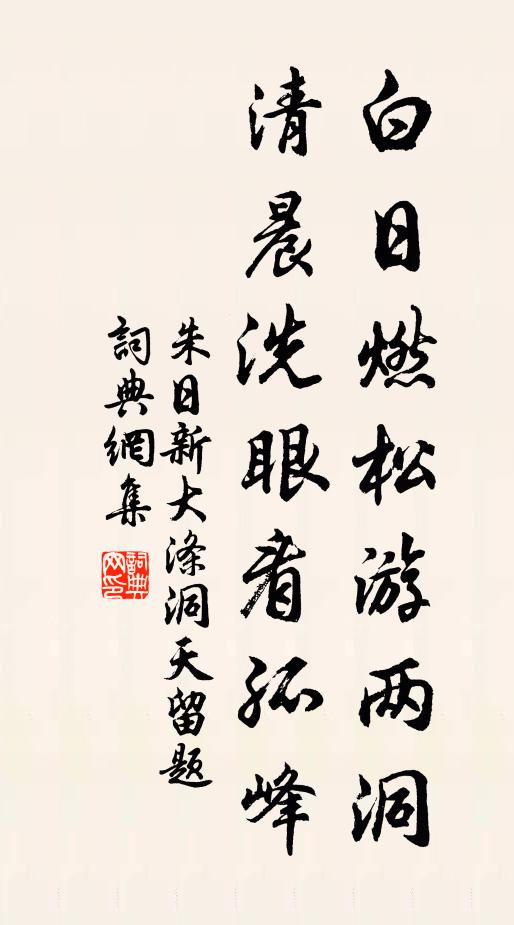 白日燃松游两洞
清晨洗眼看孤峰
朱日新大涤洞天留题
詞典網集
詞典网印